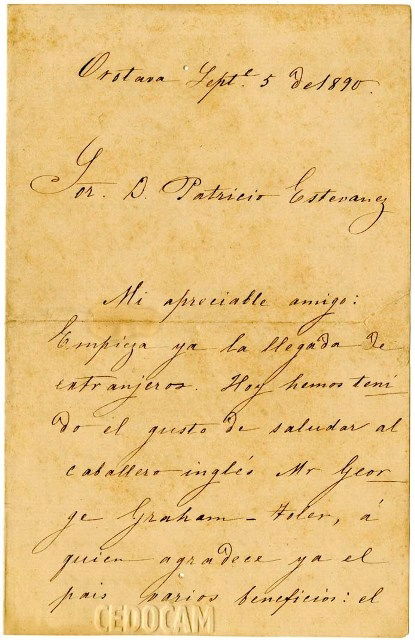 Orotava Septe. 5 de 1890.
Sor. D. Patricio Estevanez
Mi apreciable amigo:
Empieza ya la llegada de
extranjeros. Hoy hemos teni
do el gusto de saludar al
caballero inglés Mr Geor
ge Graham - Toler, á
quien agradece ya el
pais varios beneficios: el
CEDOCAM